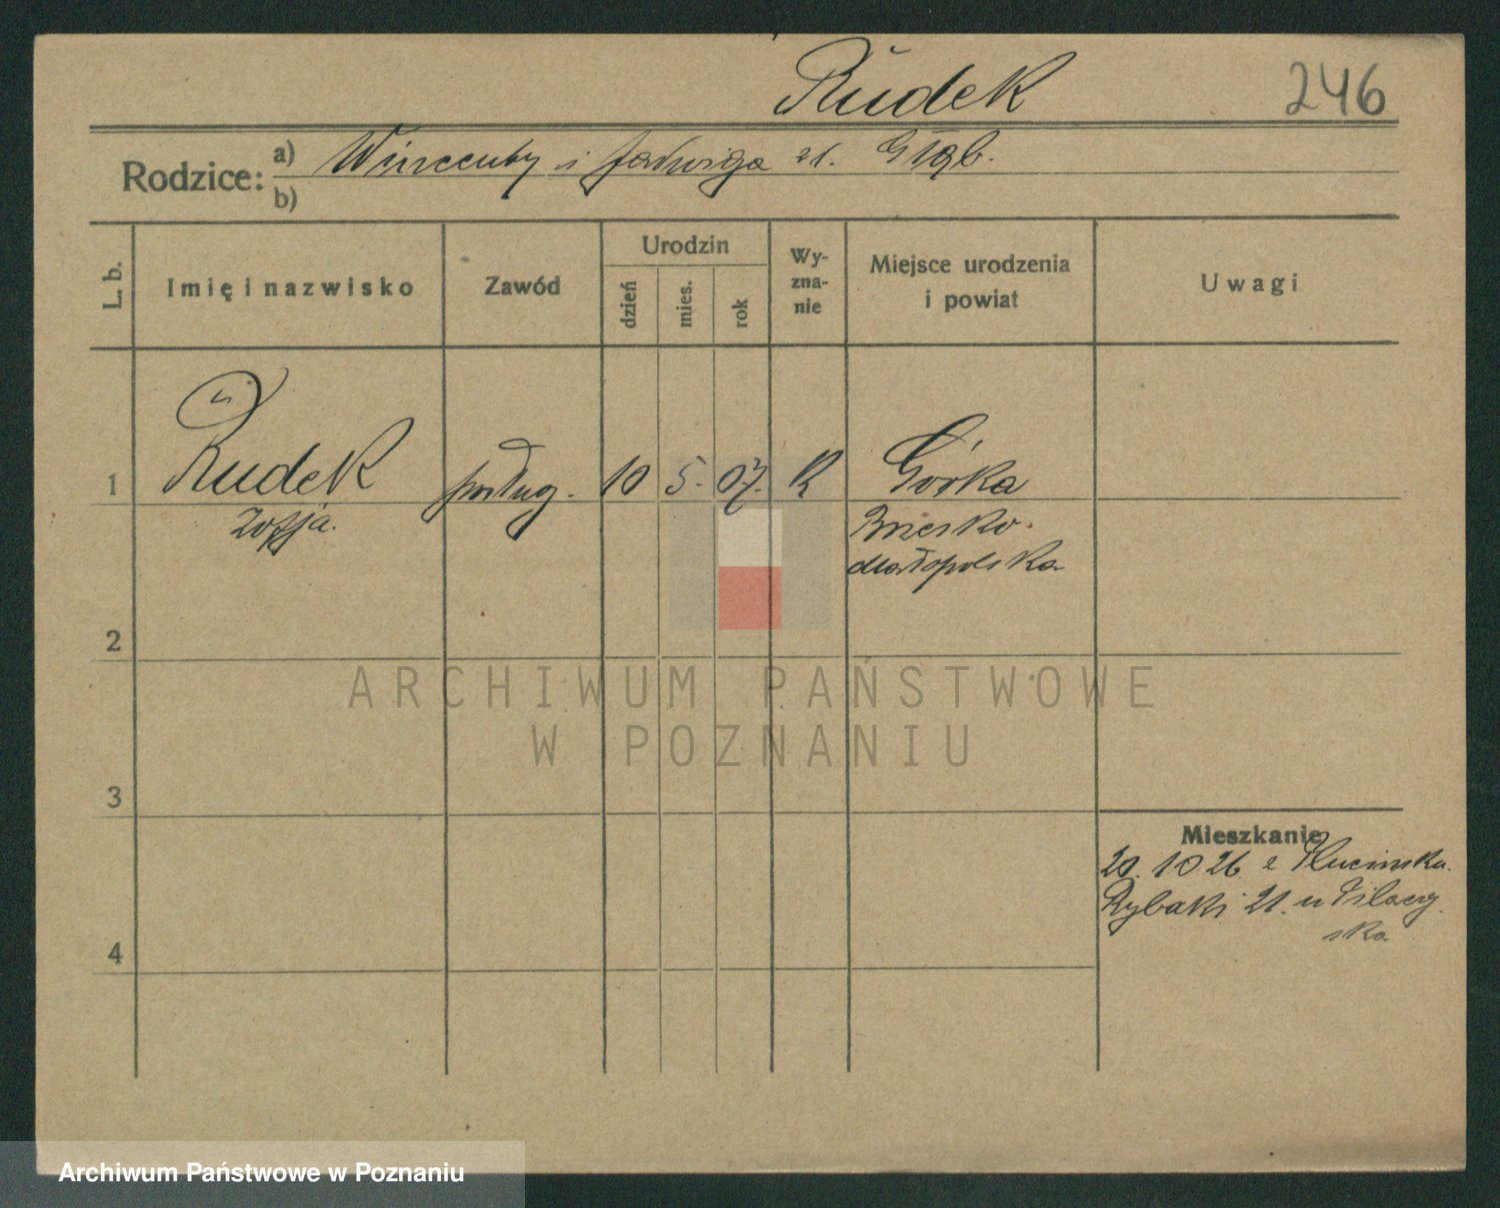 Rudek
246
Rodzice:
a) Wincenty i Jadwiga zd. Głąb.
b)
L. b.
Imię i nazwisko
Zawód
Urodzin
dzień
mies.
rok
Wy-
zna-
nie
Miejsce urodzenia
i powiat
Uwagi
1 Rudek posług. 10 5. 07. K Górka
Zofja. Brzesko
Małopolska
2
3
4
Mieszkanie
20. 10 26 z
Rybaki 21. u
ska
ARCHIWUM PAŃSTWOWE
W POZNANIU
Archiwum Państwowe w Poznaniu